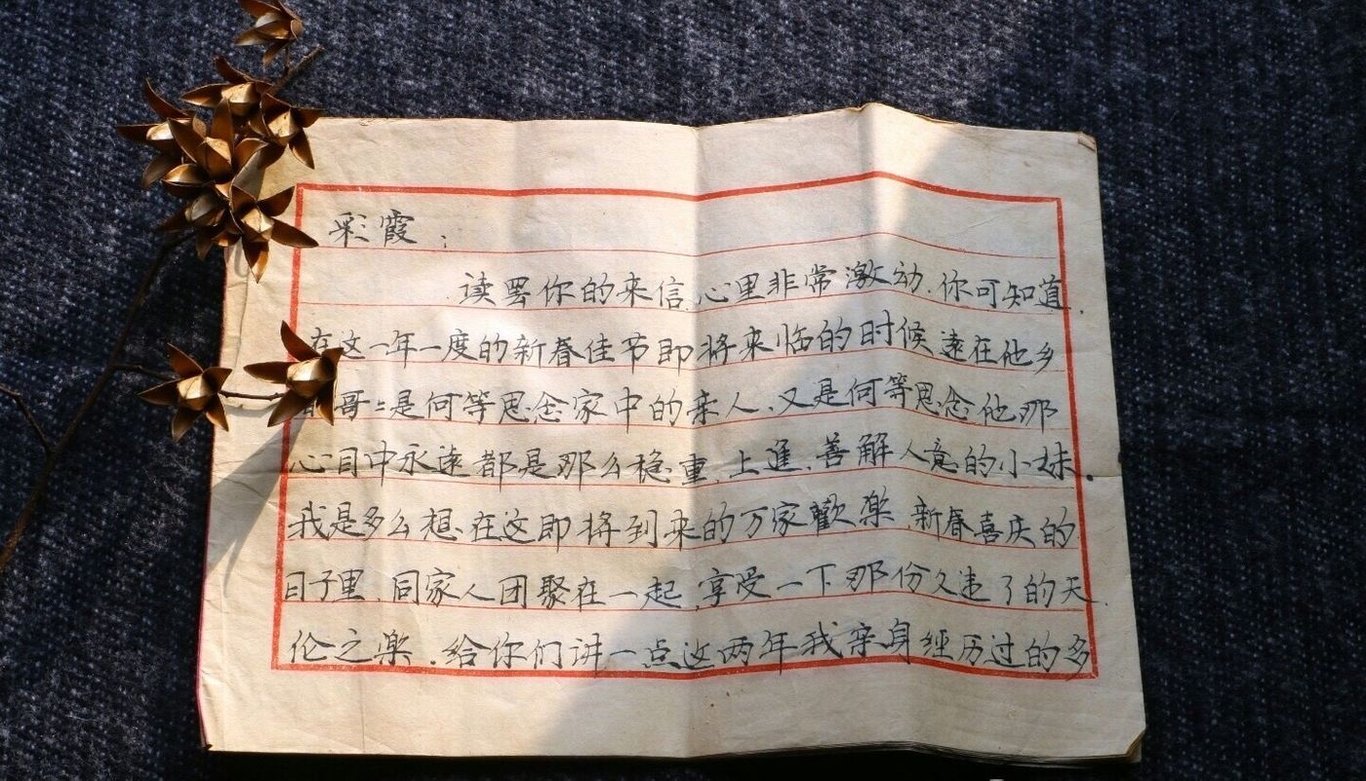 彩霞：
读罢你的来信,心里非常激动.你可知道.
在这一年一度的新春佳节即将来临的时候远在他乡
哥〻是何等思念家中的亲人.又是何等思念他那
心目中永远都是那么稳重.上進.善解人意的小妹.
我是多么想在这即将到来的万家歡楽.新春喜庆的
日子里.同家人团聚在一起,享受一下那份久违了的天
伦之楽.给你们讲一点这两年我亲身經历过的多